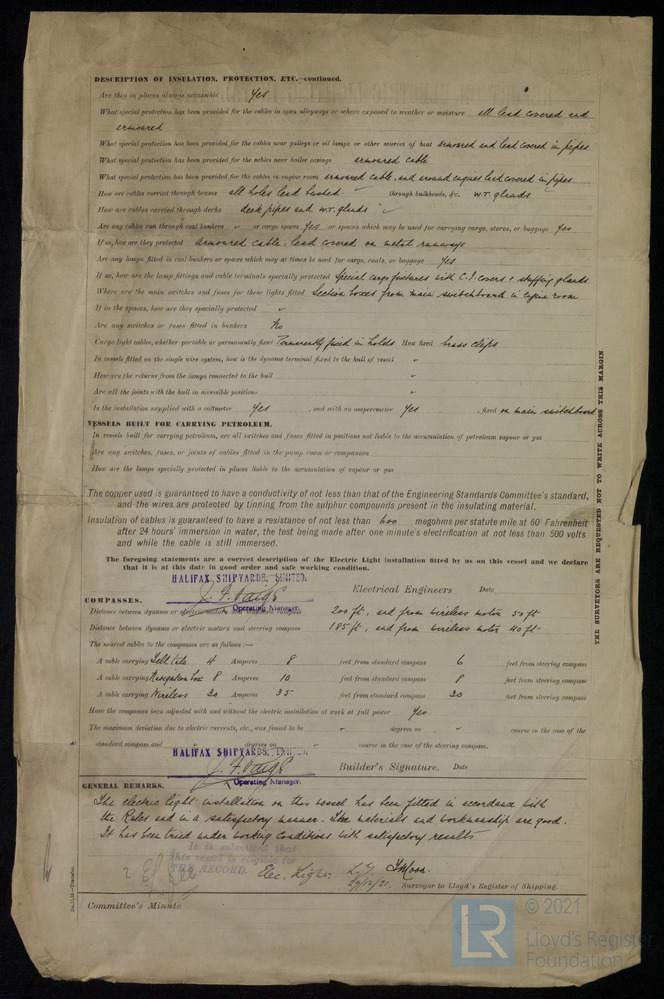 DESCRIPTION OF INSULATION, PROTECTION, ETC.—continued.
Are they in places always accessible Yes
What special protection has been provided for the cables in open alleyways or where exposed to weather or moisture all lead covered and
armoured
What special protection has been provided for the cables near galleys or oil lamps or other sources of heat armoured and lead covered in pipes
What special protection has been provided for the cables near boiler casings armoured cable
What special protection has been provided for the cables in engine room armoured cable, and around engines lead covered in pipes
How are cables carried through beams all holes lead bushed through bulkheads, &c. W.T. glands
How are cables carried through decks deck pipes and W.T. glands
Are any cables run through coal bunkers or cargo spaces Yes or spaces which may be used for carrying cargo, stores, or baggage Yes
If so, how are they protected armoured cable, lead covered on metal runways
Are any lamps fitted in coal bunkers or spaces which may at times be used for cargo, coals, or baggage Yes
If so, how are the lamp fittings and cable terminals specially protected Special cargo fixtures with C.I. covers & stuffing glands
Where are the main switches and fuses for these lights fitted Section boxes from main switchboard in engine room
If in the spaces, how are they specially protected "
Are any switches or fuses fitted in bunkers No
Cargo light cables, whether portable or permanently fixed Permanently fixed in holds How fixed brass clips
In vessels fitted on the single wire system, how is the dynamo terminal fixed to the hull of vessel "
How are the returns from the lamps connected to the hull "
Are all the joints with the hull in accessible positions "
Is the installation supplied with a voltmeter Yes , and with an amperemeter Yes , fixed on main switchboard
VESSELS BUILT FOR CARRYING PETROLEUM.
In vessels built for carrying petroleum, are all switches and fuses fitted in positions not liable to the accumulation of petroleum vapour or gas
Are any switches, fuses, or joints of cables fitted in the pump room or companion
How are the lamps specially protected in places liable to the accumulation of vapour or gas
The copper used is guaranteed to have a conductivity of not less than that of the Engineering Standards Committee's standard,
and the wires are protected by tinning from the sulphur compounds present in the insulating material.
Insulation of cables is guaranteed to have a resistance of not less than 600 megohms per statute mile at 60° Fahrenheit
after 24 hours' immersion in water, the test being made after one minute's electrification at not less than 500 volts
and while the cable is still immersed.
The foregoing statements are a correct description of the Electric Light installation fitted by us on this vessel and we declare
that it is at this date in good order and safe working condition.
HALIFAX SHIPYARDS, LIMITED.
Electrical Engineers Date
Operating Manager.
COMPASSES.
Distance between dynamo or electric motors and standard compass 200 ft, and from wireless motor 50 ft
Distance between dynamo or electric motors and steering compass 185 ft, and from wireless motor 40 ft
The nearest cables to the compasses are as follows:—
A cable carrying Tell tale 4 Amperes 8 feet from standard compass 6 feet from steering compass
A cable carrying Navigation box 8 Amperes 10 feet from standard compass 8 feet from steering compass
A cable carrying Wireless 20 Amperes 25 feet from standard compass 20 feet from steering compass
Have the compasses been adjusted with and without the electric installation at work at full power Yes
The maximum deviation due to electric currents, etc., was found to be " degrees on " course in the case of the
standard compass and " degrees on " course in the case of the steering compass.
HALIFAX SHIPYARDS, LIMITED.
Builder's Signature. Date
Operating Manager.
GENERAL REMARKS.
The electric light installation on this vessel has been fitted in accordance with
the Rules and in a satisfactory manner. The materials and workmanship are good.
It has been tried under working conditions with satisfactory results
It is submitted that
this vessel is eligible for
THE RECORD. Elec. Light.
29/12/21. Surveyor to Lloyd's Register of Shipping.
Committee's Minute
THE SURVEYORS ARE REQUESTED NOT TO WRITE ACROSS THIS MARGIN.
LR © 2021
Lloyd's Register
Foundation